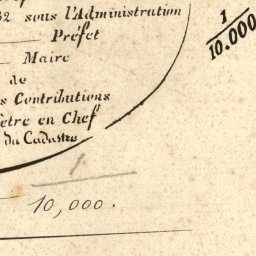 32 sous l'Administration
Préfet
Maire
de
s Contributions
ètre en Chef
du Cadastre
1
10.000
1
10,000.